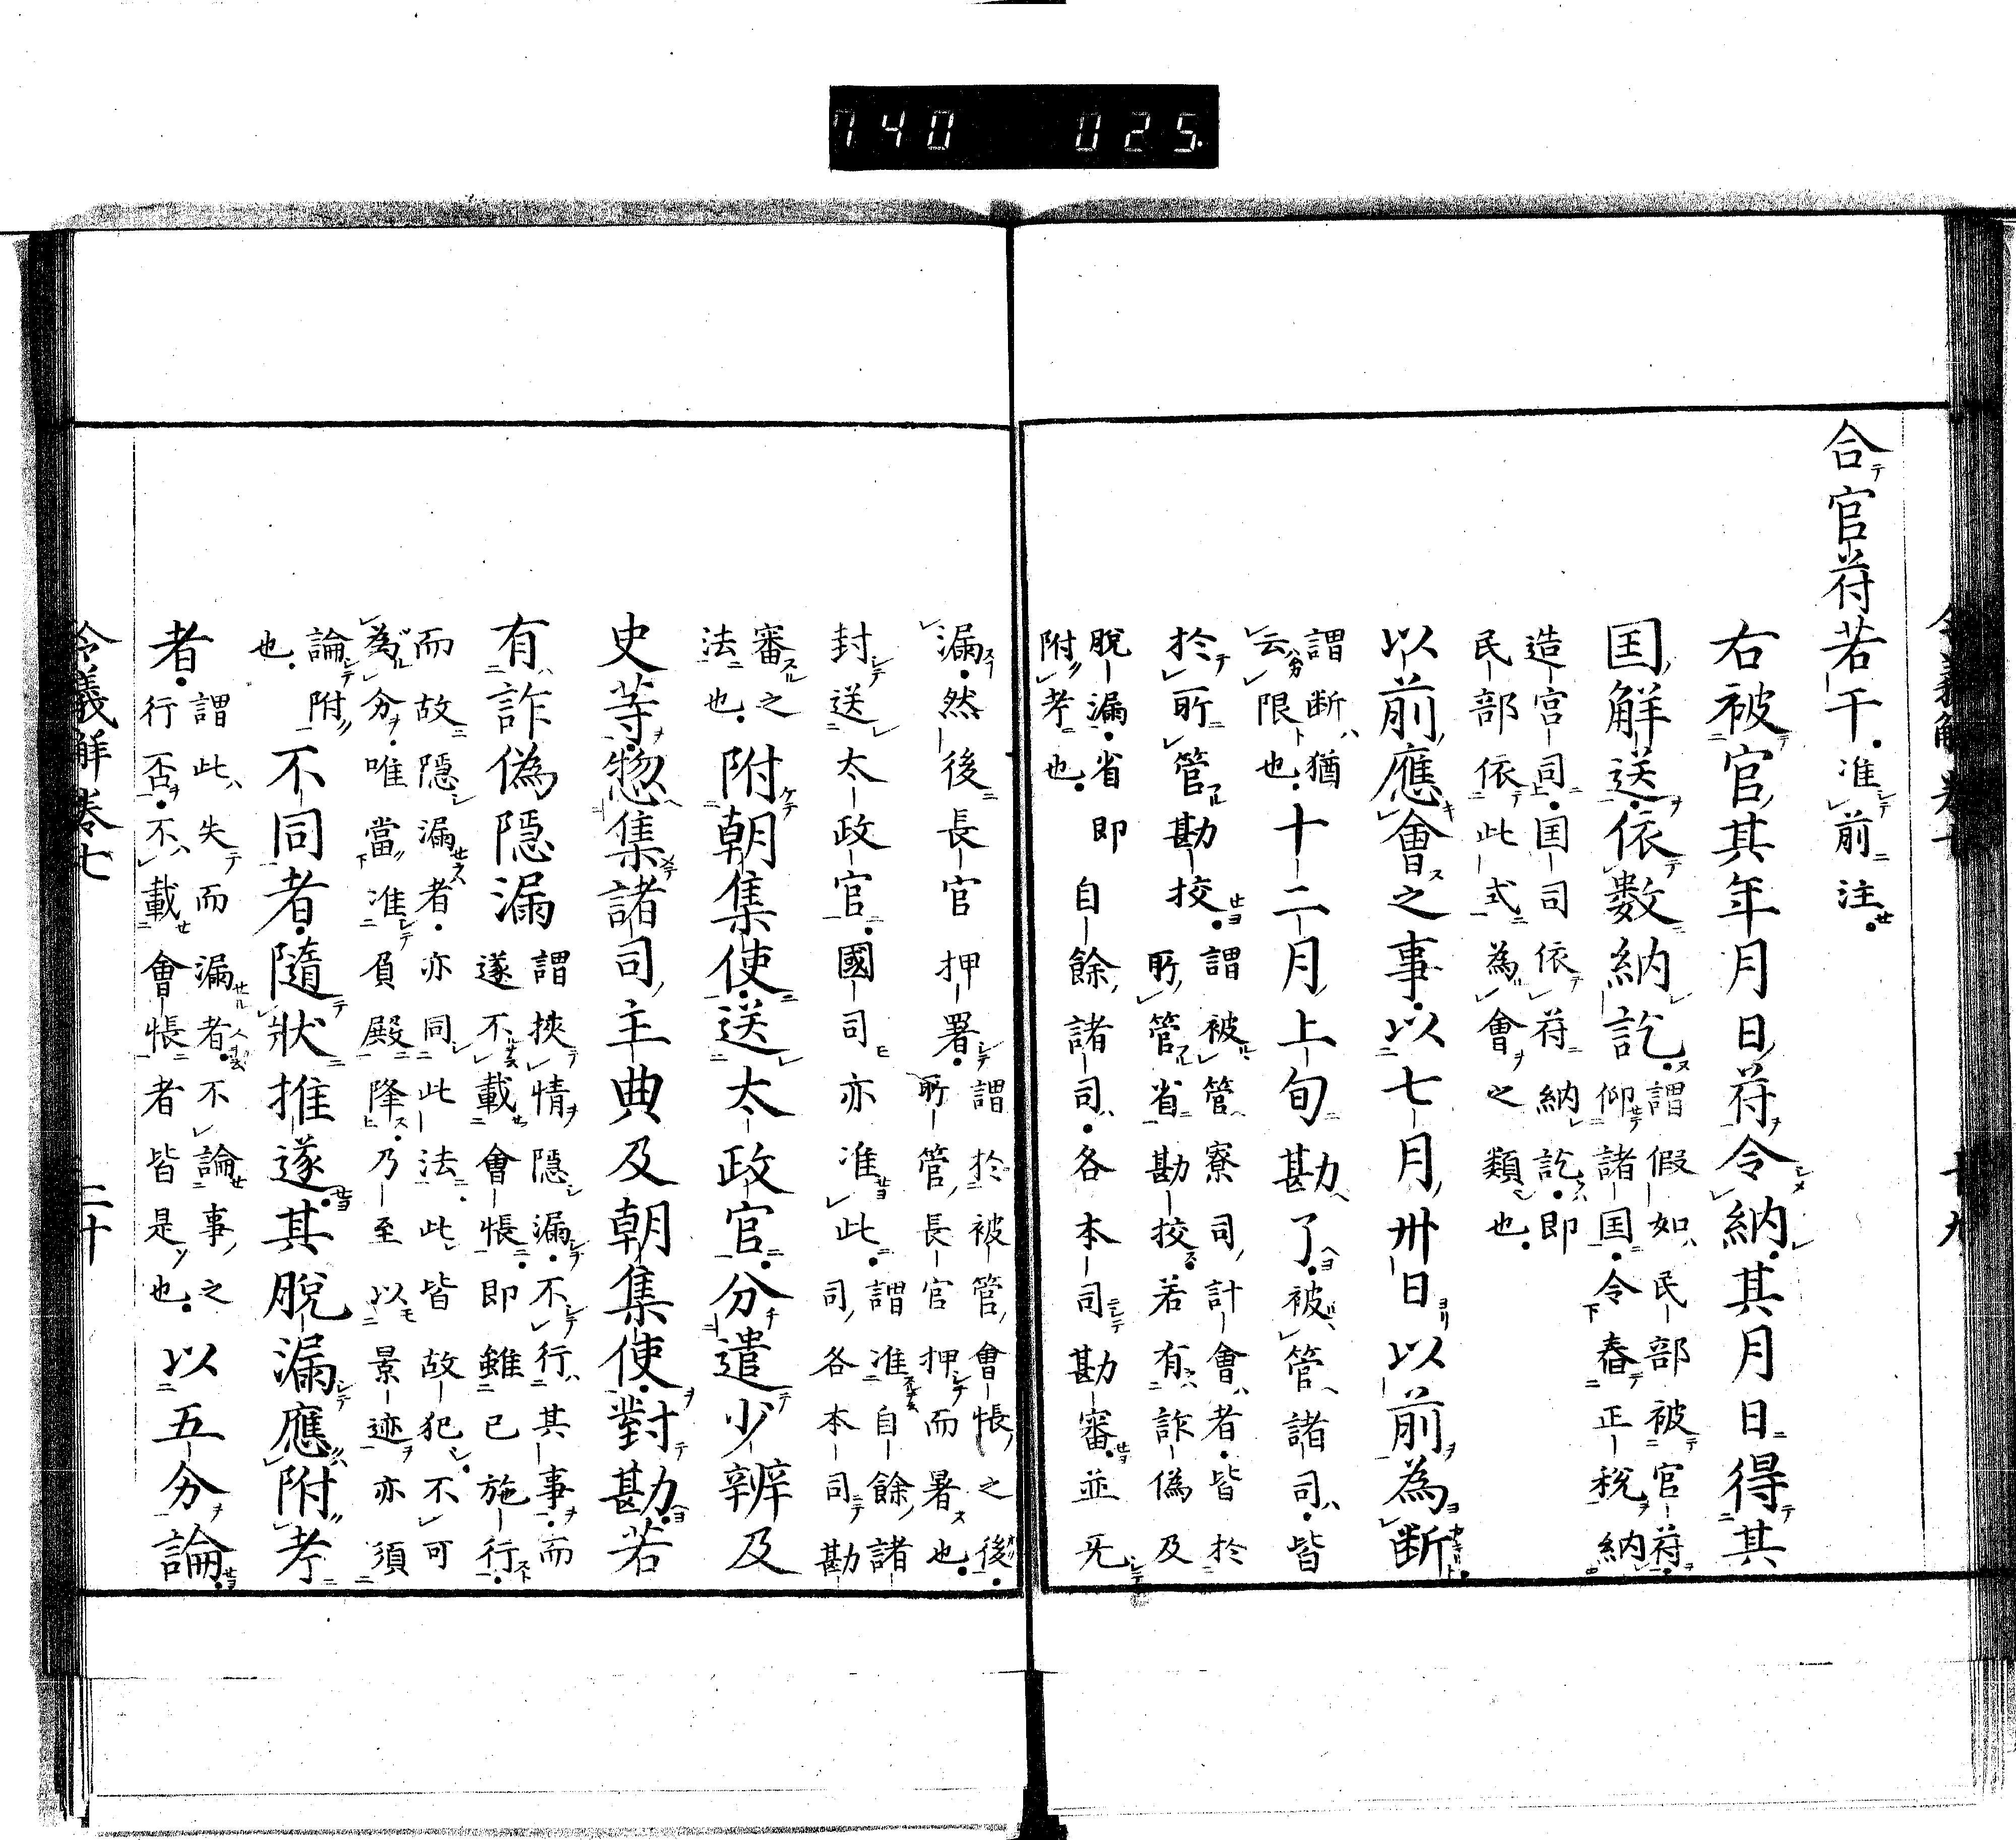 740 025
合官符若干准前注
右被官其年月日符令納其月日得其
国解送依数納訖謂假如民部被官符
仰諸国令舂正税納
造宮司国司依符納訖即
民部依此式為會之類也
以前應會之事以七月卅日以前為断
謂断猶
云限也十二月上旬勘了被管諸司皆
於所管勘挍謂被管寮司計會者皆於
所管省勘挍若有詐偽及
脱漏省即
附考也自餘諸司各本司勘審並旡
漏然後長官押署謂於被管會帳之後
所管長官押而署也
封送太政官國司亦准此謂准自餘諸
司各本司勘
審之
法也附朝集使送太政官分遣少辨及
史等惣集諸司主典及朝集使對勘若
有詐偽隠漏謂挾情隠漏不行其事而
遂不載會帳即雖已施行
而故隠漏者亦同此法此皆故犯不可
為分唯當准負殿降乃至以景迹亦須
論附
也不同者隨状推逐其脱漏應附考
者謂此失而漏者不論事之
行否不載會帳者皆是也以五分論
令義解巻七 二十